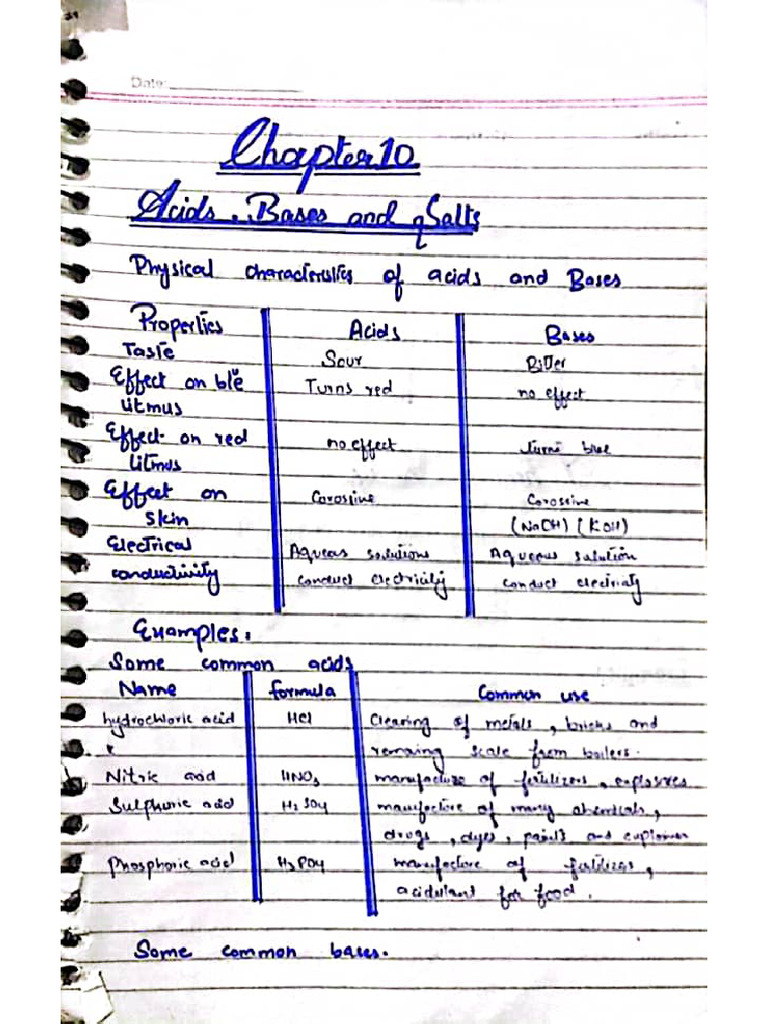 Date:
Chapter 10
Acids, Bases and Salts
Physical characteristics of acids and Bases
Properties Acids Bases
Taste Sour Bitter
Effect on ble Turns red no effect
litmus
Effect on red no effect Turns blue
litmus
Effect on Corossive Corossive
skin (NaOH) (KOH)
Electrical Aqueos solutions Aqueous solution
conductivity conduct electricity conduct electricity
Examples.
Some common acids
Name formula Common use
hydrochloric acid HCl Clearing of metals, bricks and
removing scale from boilers.
Nitric acid HNO3 manufacture of fertilizers, explosives
Sulphuric acid H2SO4 manufactore of many chemicals,
drugs, dyes, paints and
Phosphoric acid H3PO4 manufactore of fertilizers,
acidulant for food.
Some common bases.